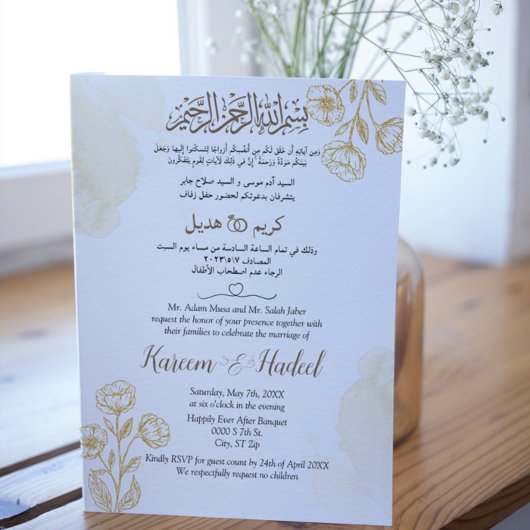 بسم الله الرحمن الرحيم
وَمِنْ آيَاتِهِ أَنْ خَلَقَ لَكُم مِّنْ أَنفُسِكُمْ أَزْوَاجًا لِّتَسْكُنُوا إِلَيْهَا وَجَعَلَ
بَيْنَكُم مَّوَدَّةً وَرَحْمَةً ۚ إِنَّ فِي ذَٰلِكَ لَآيَاتٍ لِّقَوْمٍ يَتَفَكَّرُونَ
السيد آدم موسى و السيد صلاح جابر
يتشرفان بدعوتكم لحضور حفل زفاف
كريم هديل
وذلك في تمام الساعة السادسة من مساء يوم السبت
المصادف ٢٠٢٣\٥\٧
الرجاء عدم اصطحاب الأطفال
Mr. Adam Musa and Mr. Salah Jaber
request the honor of your presence together with
their families to celebrate the marriage of
Kareem & Hadeel
Saturday, May 7th, 20XX
at six o'clock in the evening
Happily Ever After Banquet
0000 S 7th St.
City, ST Zip
Kindly RSVP for guest count by 24th of April 20XX
We respectfully request no children